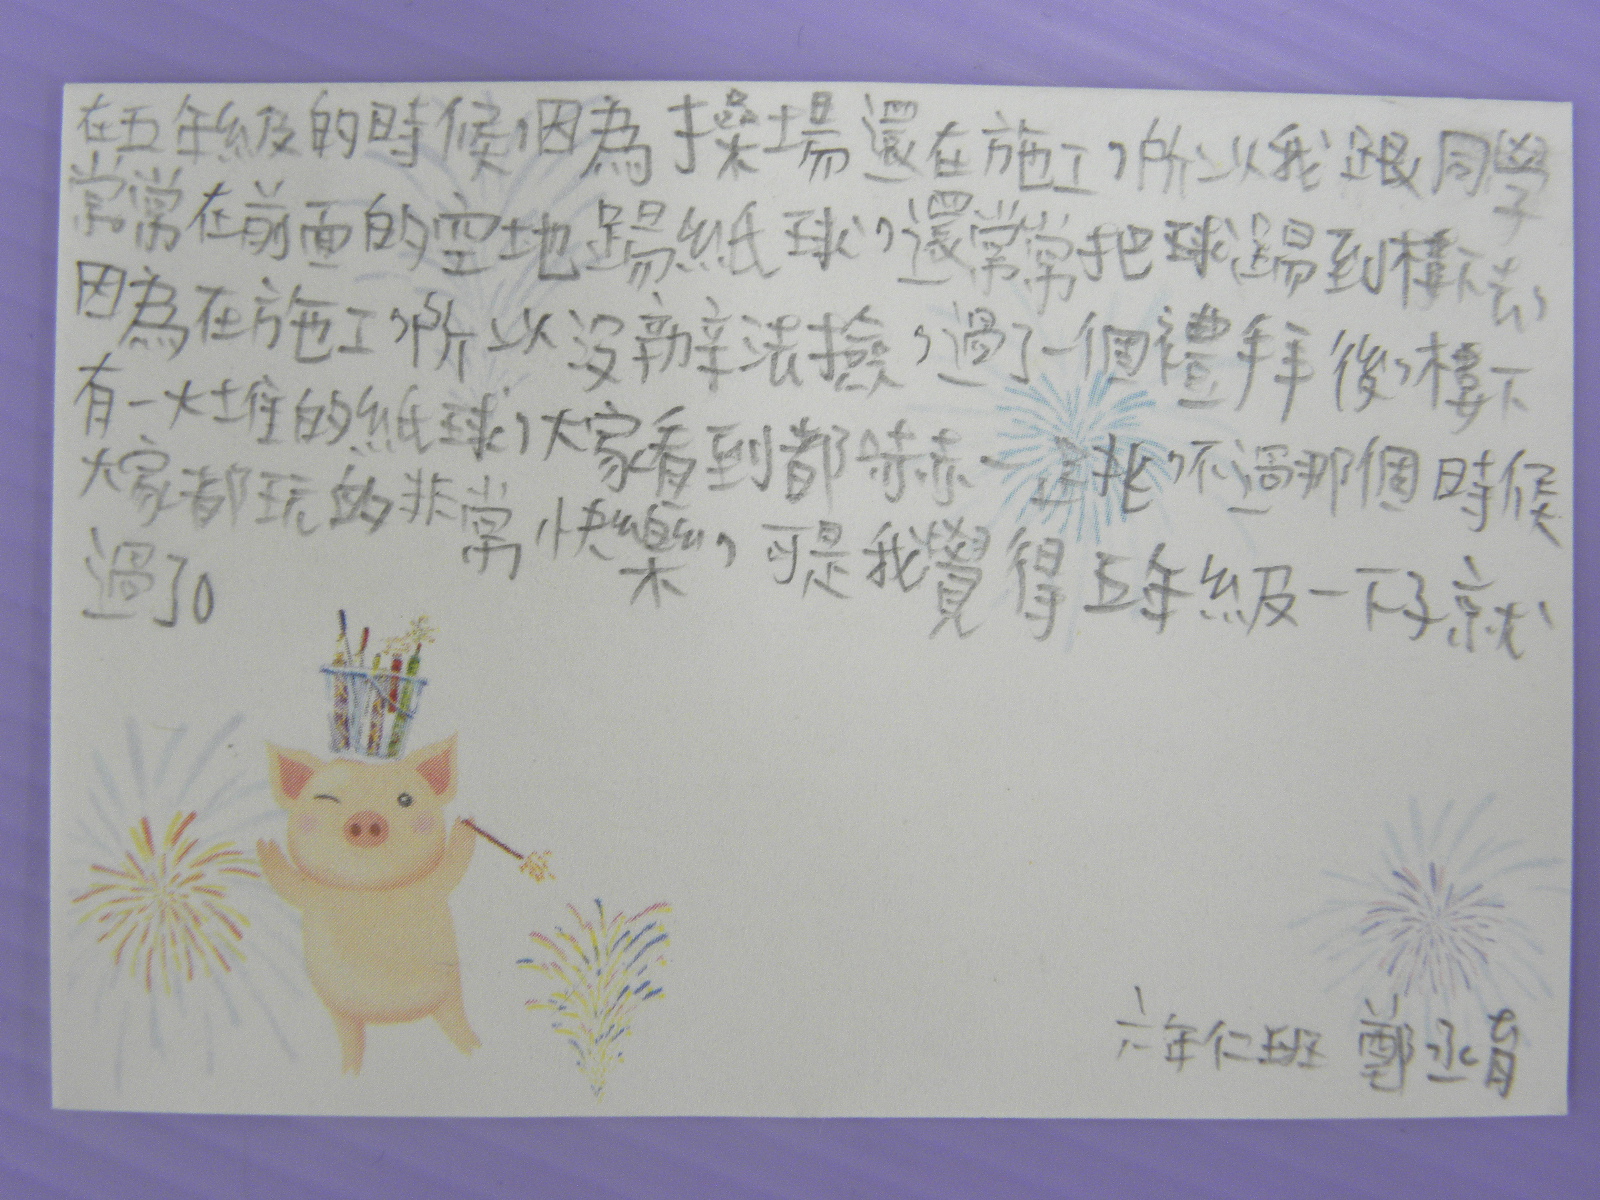 在五年級的時候,因為操場還在施工,所以我跟同學
常常在前面的空地踢紙球,還常常把球踢到樓下去,
因為在施工,所以沒辦法撿,過了一個禮拜後,樓下
有一大堆的紙球,大家看到都嚇一跳,不過那個時候
大家都玩的非常快樂,可是我覺得五年級一下子就
過了。
六年仁班 鄭丞育